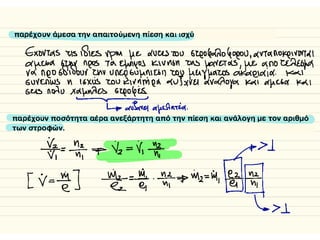 παρέχουν άμεσα την απαιτούμενη πίεση και ισχύ
έχοντας τις ίδιες γραμ με αυτες του στροφαλοφορου, ανταποκρίνονται
αμεσα στην προς τα εμπρος κινηση της μανετας, με αποτελεσμα
να προσδίδουν την υπερσυμπιεση του μειγματος ακαριαία και
συνεπως η ισχύς του κινητηρα αυξανει αναλογα και αμεσα και
στις πολυ χαμηλες στροφες
αμελητεα.
παρέχουν ποσότητα αέρα ανεξάρτητη από την πίεση και ανάλογη με τον αριθμό
των στροφών.
V̇2/V̇1 = n2/n1 ⇒ V̇2 = V̇1 n2/n1
[V̇ = ṁ/ρ] ṁ2/ρ2 = ṁ1/ρ1 · n2/n1 ⇒ ṁ2 = ṁ1 ρ2/ρ1 n2/n1 >1
>1